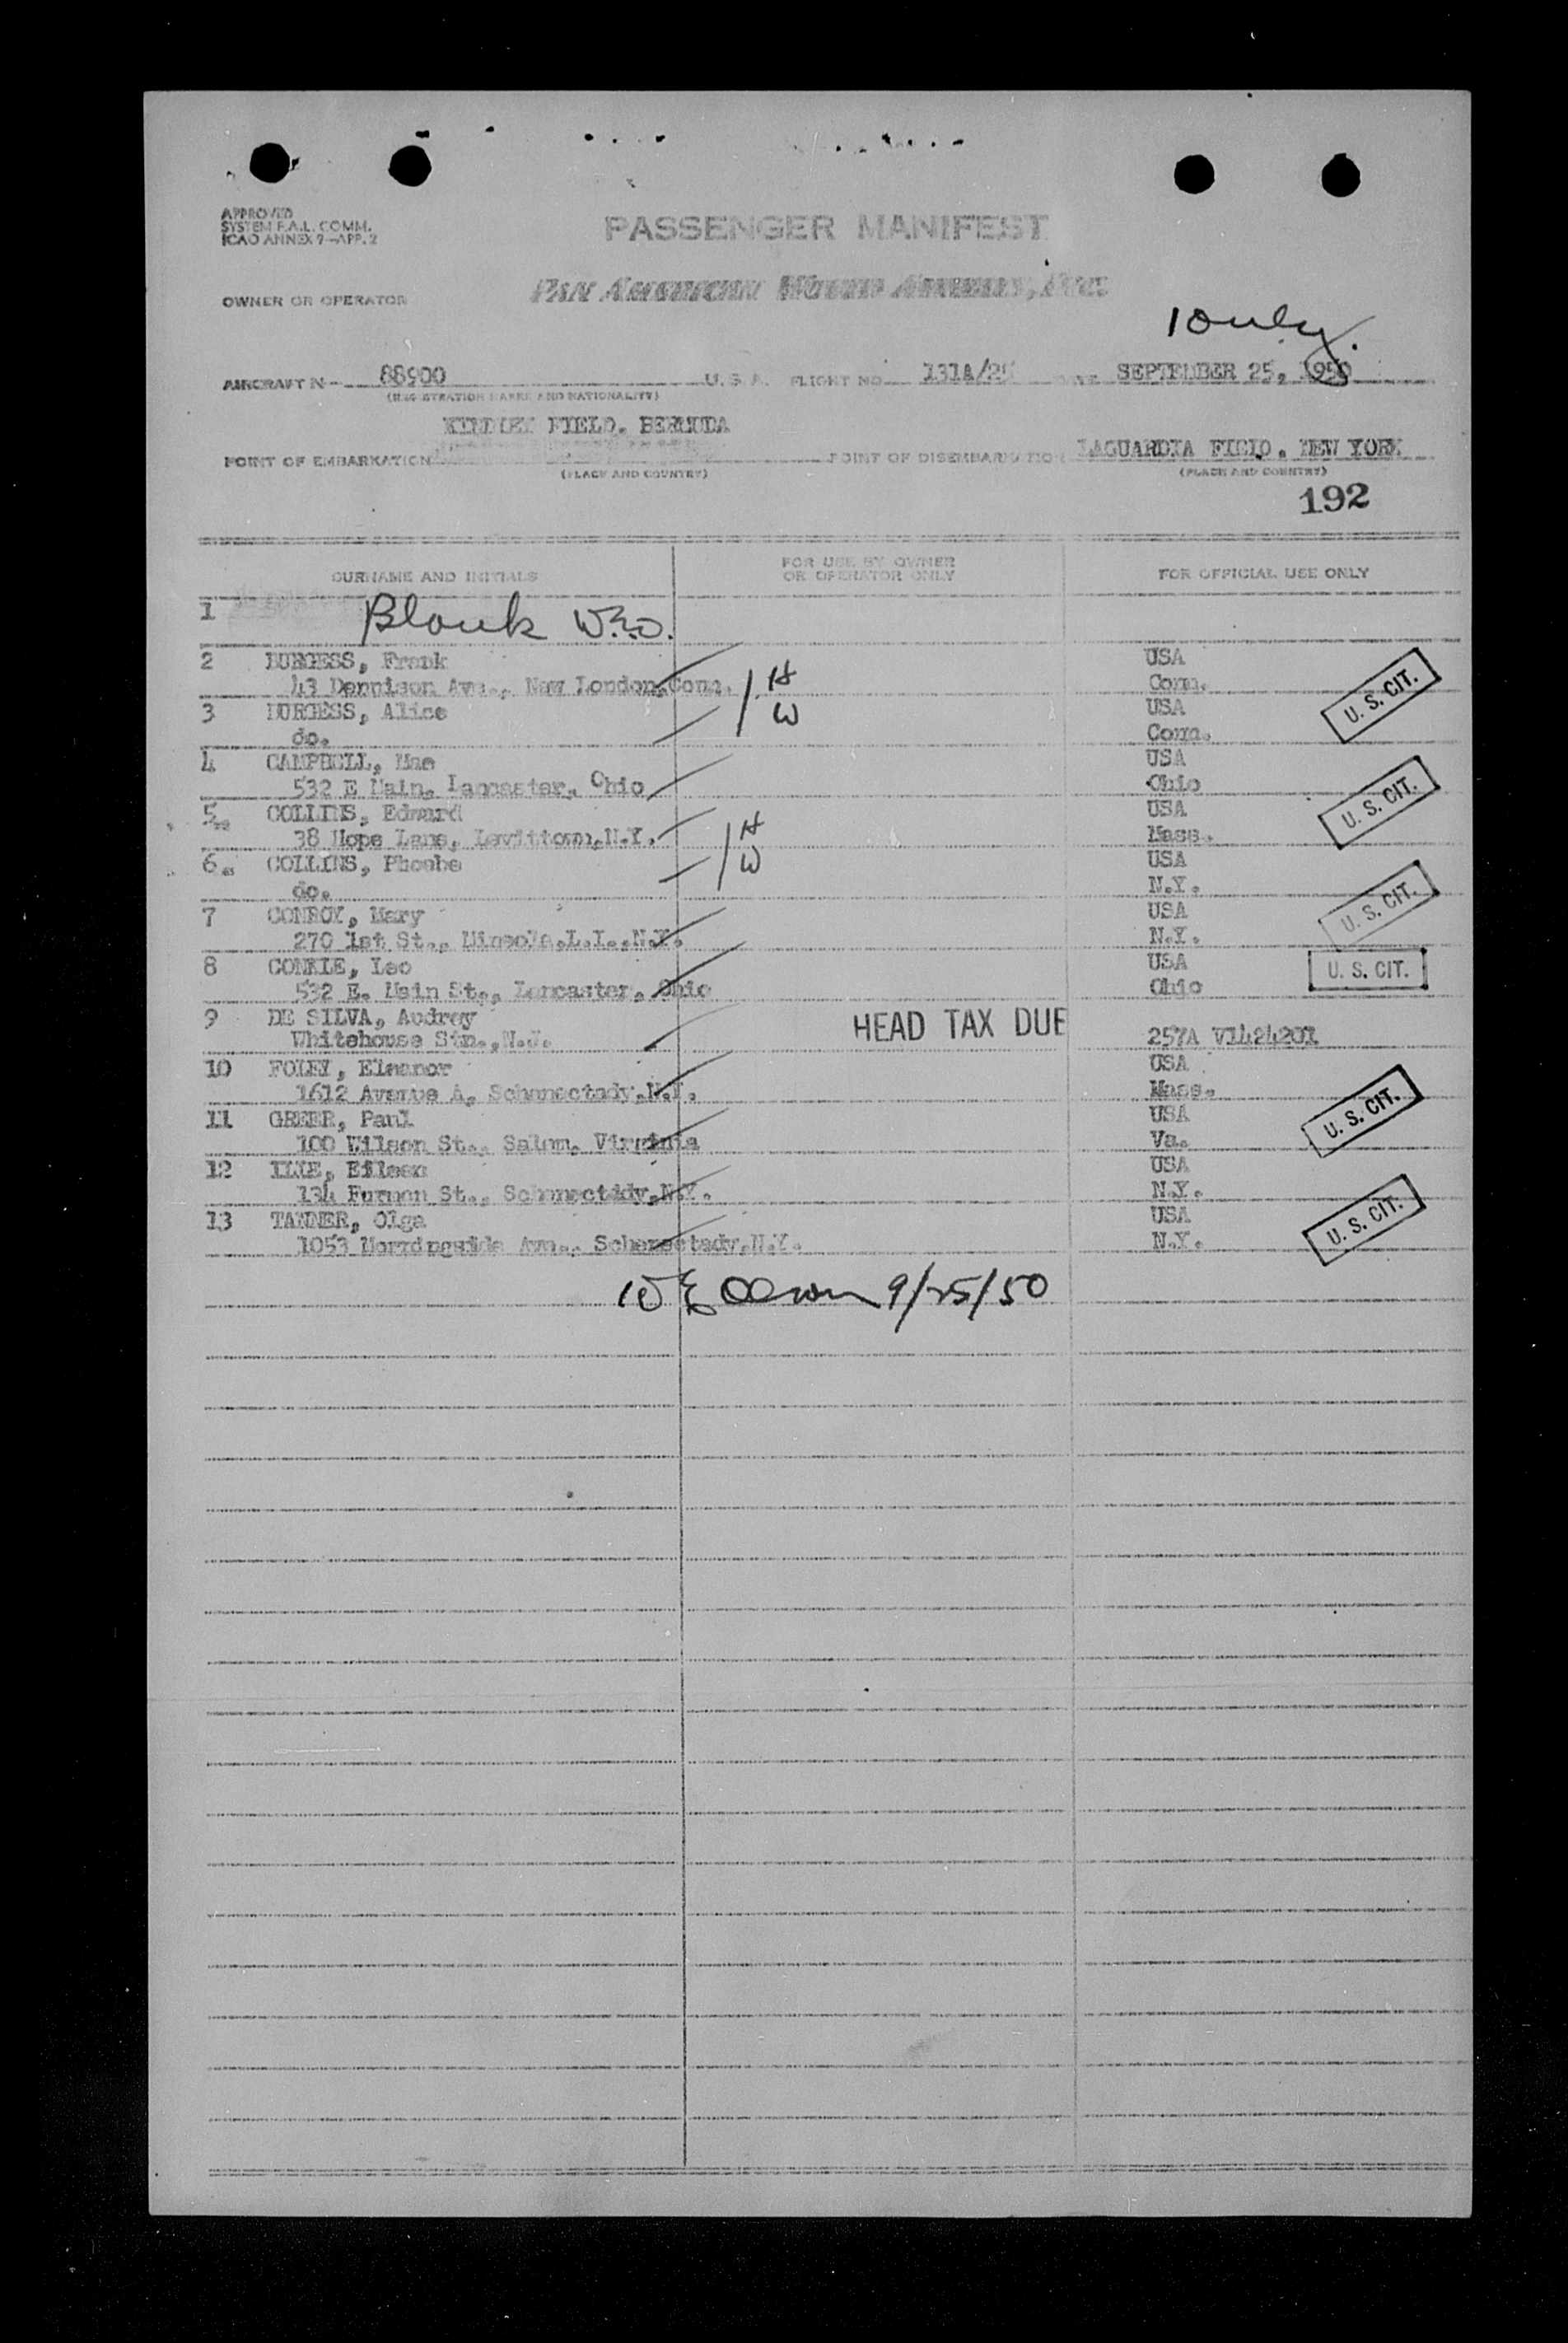 APPROVED
SYSTEM F.A.L. COMM.
ICAO ANNEX 9—APP. 2
PASSENGER MANIFEST
OWNER OR OPERATOR
PAN AMERICAN WORLD AIRWAYS, INC.
1 only.
AIRCRAFT N- 88900 U. S. A. FLIGHT NO. 131A/25 DATE SEPTEMBER 25, 1950
(REGISTRATION MARKS AND NATIONALITY)
KINDLEY FIELD. BERMUDA
POINT OF EMBARKATION POINT OF DISEMBARKATION LAGUARDIA FIELD. NEW YORK
(PLACE AND COUNTRY) (PLACE AND COUNTRY)
192
SURNAME AND INITIALS FOR USE BY OWNER OR OPERATOR ONLY FOR OFFICIAL USE ONLY
1 Blank W.E.O.
2 BURGESS, Frank USA
43 Dennison Ave., New London, Conn. H Conn. U. S. CIT.
3 BURGESS, Alice W USA
do. Conn.
4 CAMPBELL, Mae USA
532 E Main, Lancaster, Ohio Ohio U. S. CIT.
5 COLLINS, Edward USA
38 Hope Lane, Levittown, N.Y. H Mass.
6 COLLINS, Phoebe W USA
do. N.Y. U. S. CIT.
7 CONROY, Mary USA
270 1st St., Mineola, L.I., N.Y. N.Y.
8 CONKLE, Leo USA U. S. CIT.
532 E. Main St., Lancaster, Ohio Ohio
9 DE SILVA, Audrey HEAD TAX DUE
Whitehouse Stn., N.J. 257A V1424201
10 FOLEY, Eleanor USA
1612 Avenue A, Schenectady, N.Y. Mass.
11 GREER, Paul USA U. S. CIT.
100 Wilson St., Salem, Virginia Va.
12 Eileen USA
134 Furman St., Schenectady, N.Y. N.Y.
13 TANNER, Olga USA U. S. CIT.
1053 Morningside Ave., Schenectady, N.Y. N.Y.
W E Olson 9/25/50